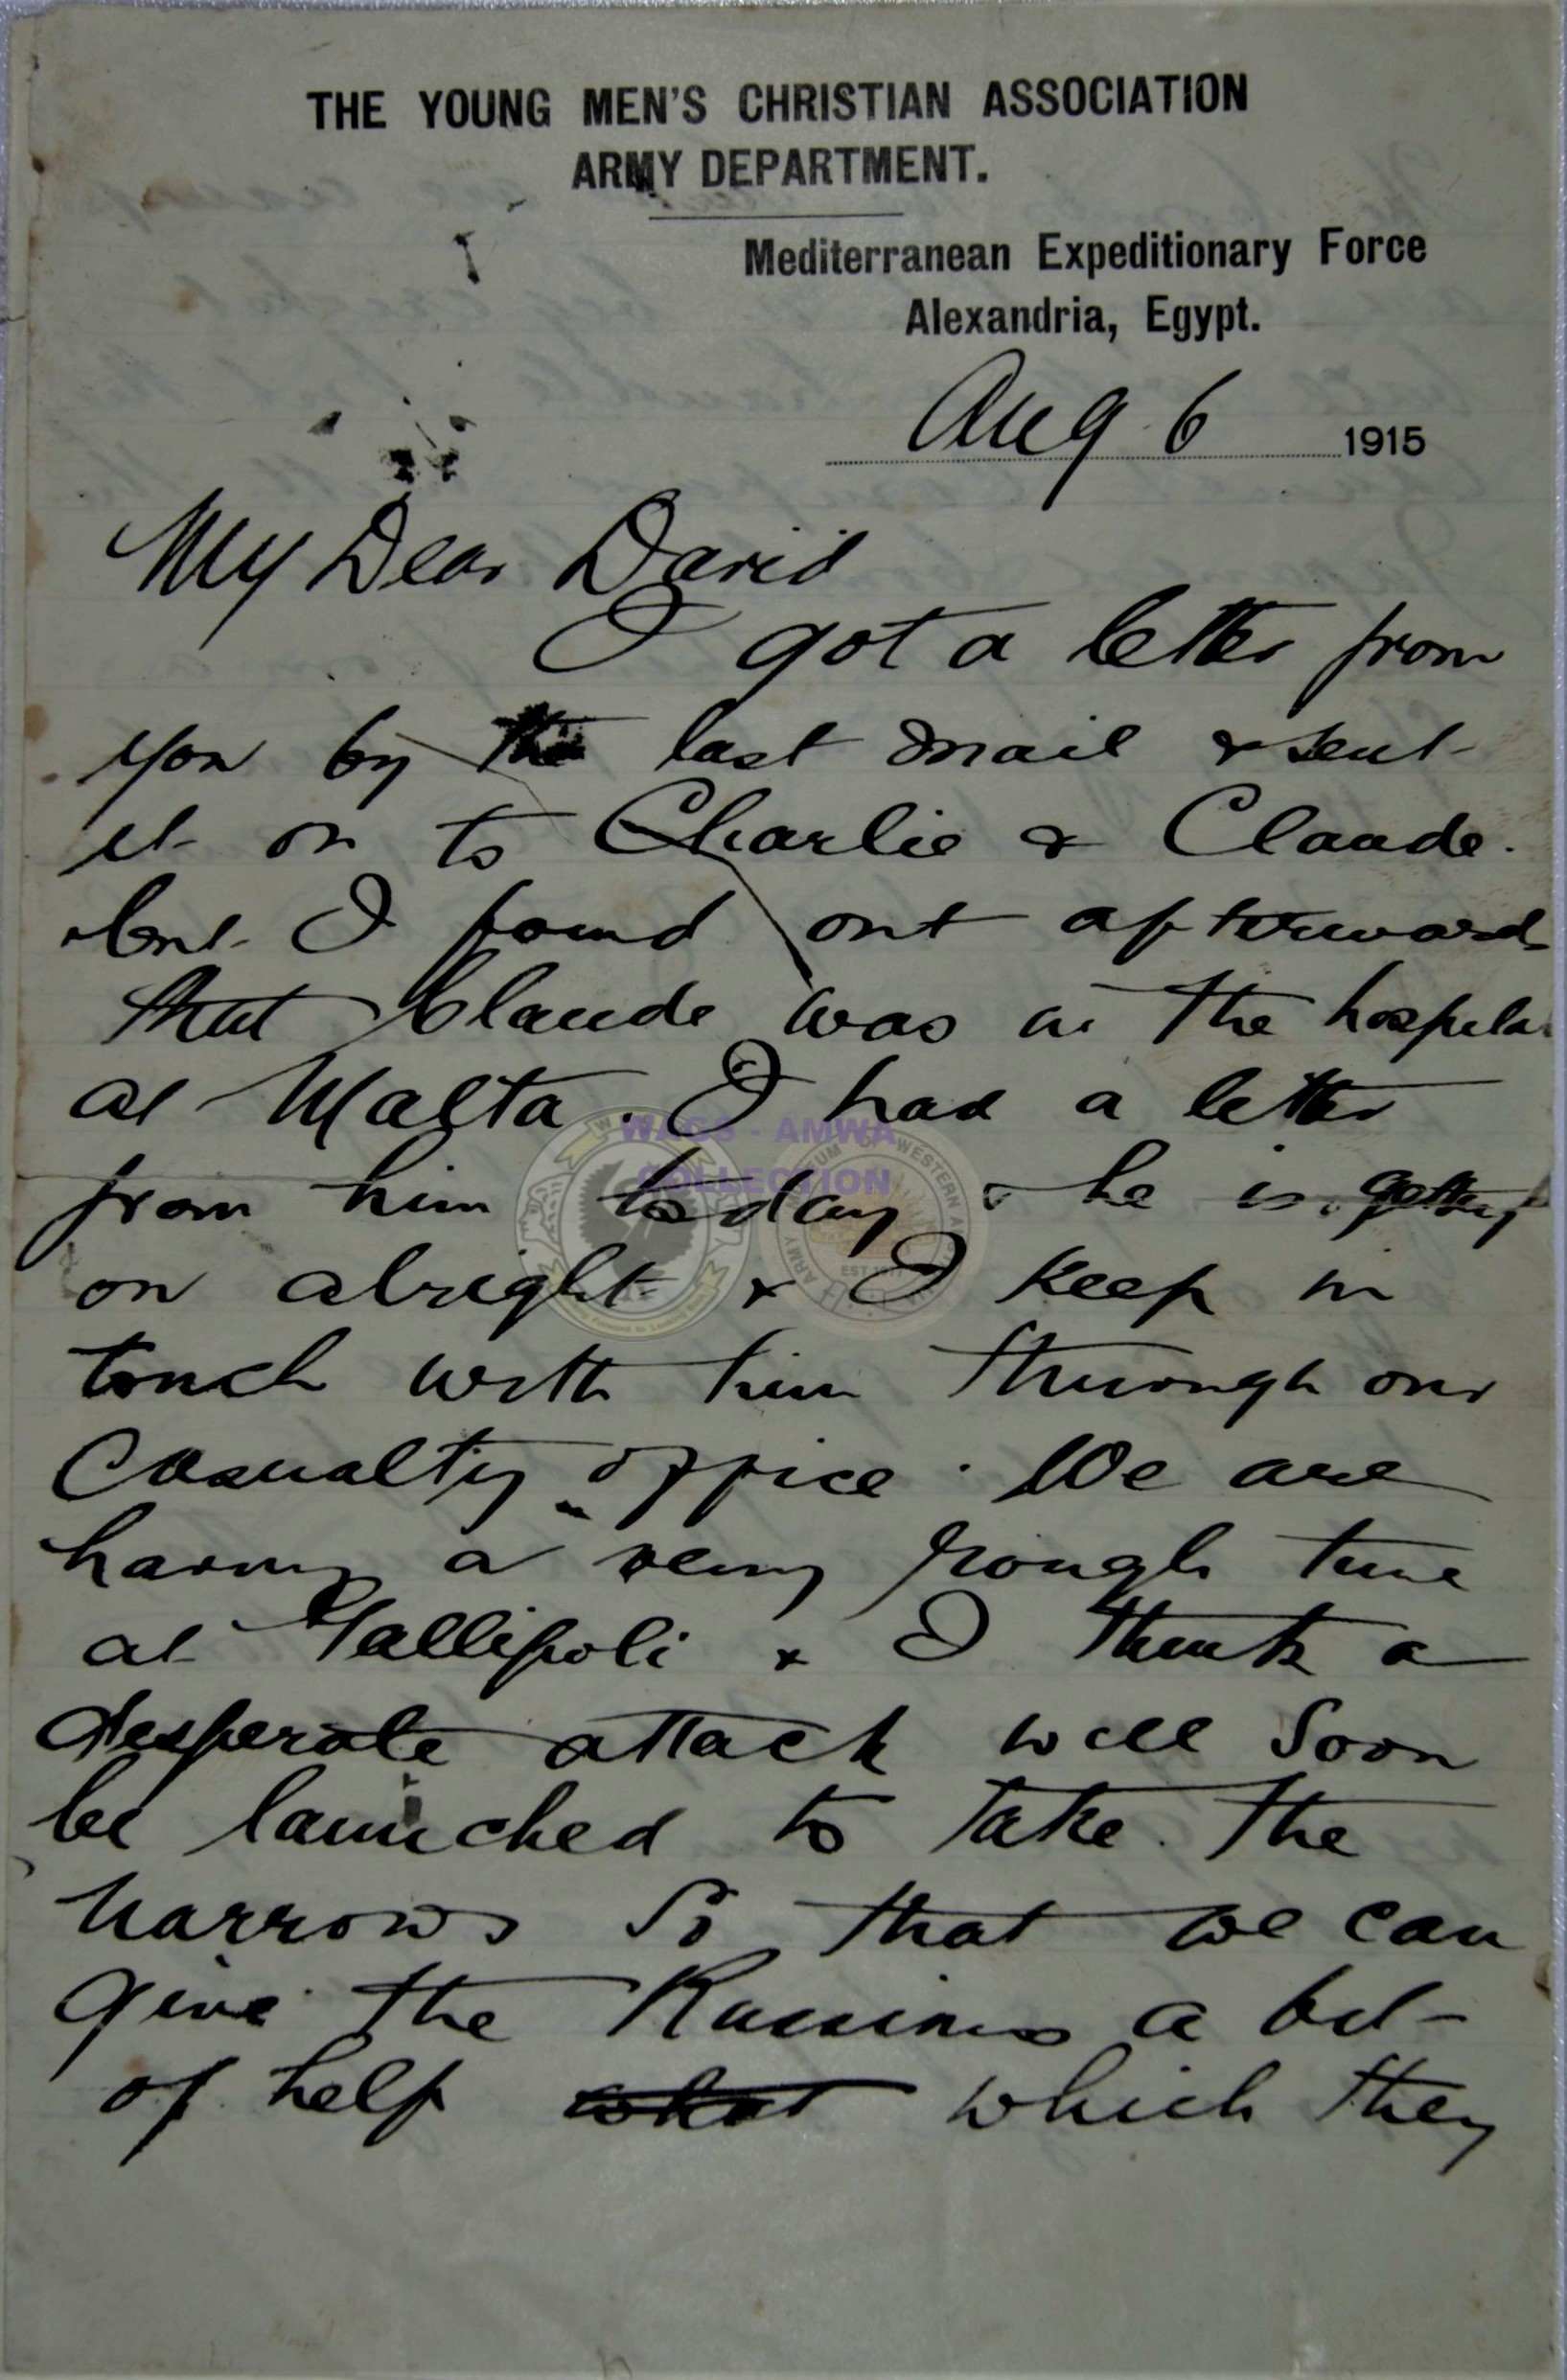 THE YOUNG MEN'S CHRISTIAN ASSOCIATION
ARMY DEPARTMENT.
Mediterranean Expeditionary Force
Alexandria, Egypt.
Aug 6 1915
My Dear David
I got a letter from
you by the last mail & sent
it on to Charlie & Claude.
but I found out afterwards
that Claude was in the hospital
at Malta. I had a letter
from him today & he is getting
on alright & I keep in
touch with him through our
Casualty office. We are
having a very rough time
at Gallipoli & I think a
desperate attack will soon
be launched to take the
narrows so that we can
give the Russians a bit
of help what which they
WAGS - AMWA
COLLECTION